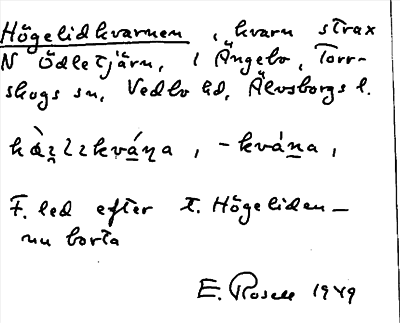 Högelidkvarnen, kvarn strax
N Ödletjärn, i Ängebo, Torr-
skogs sn, Vedbo hd, Älvsborgs l.
-kvána,
F. led efter t. Högeliden -
nu borta
E. Rosell 1949